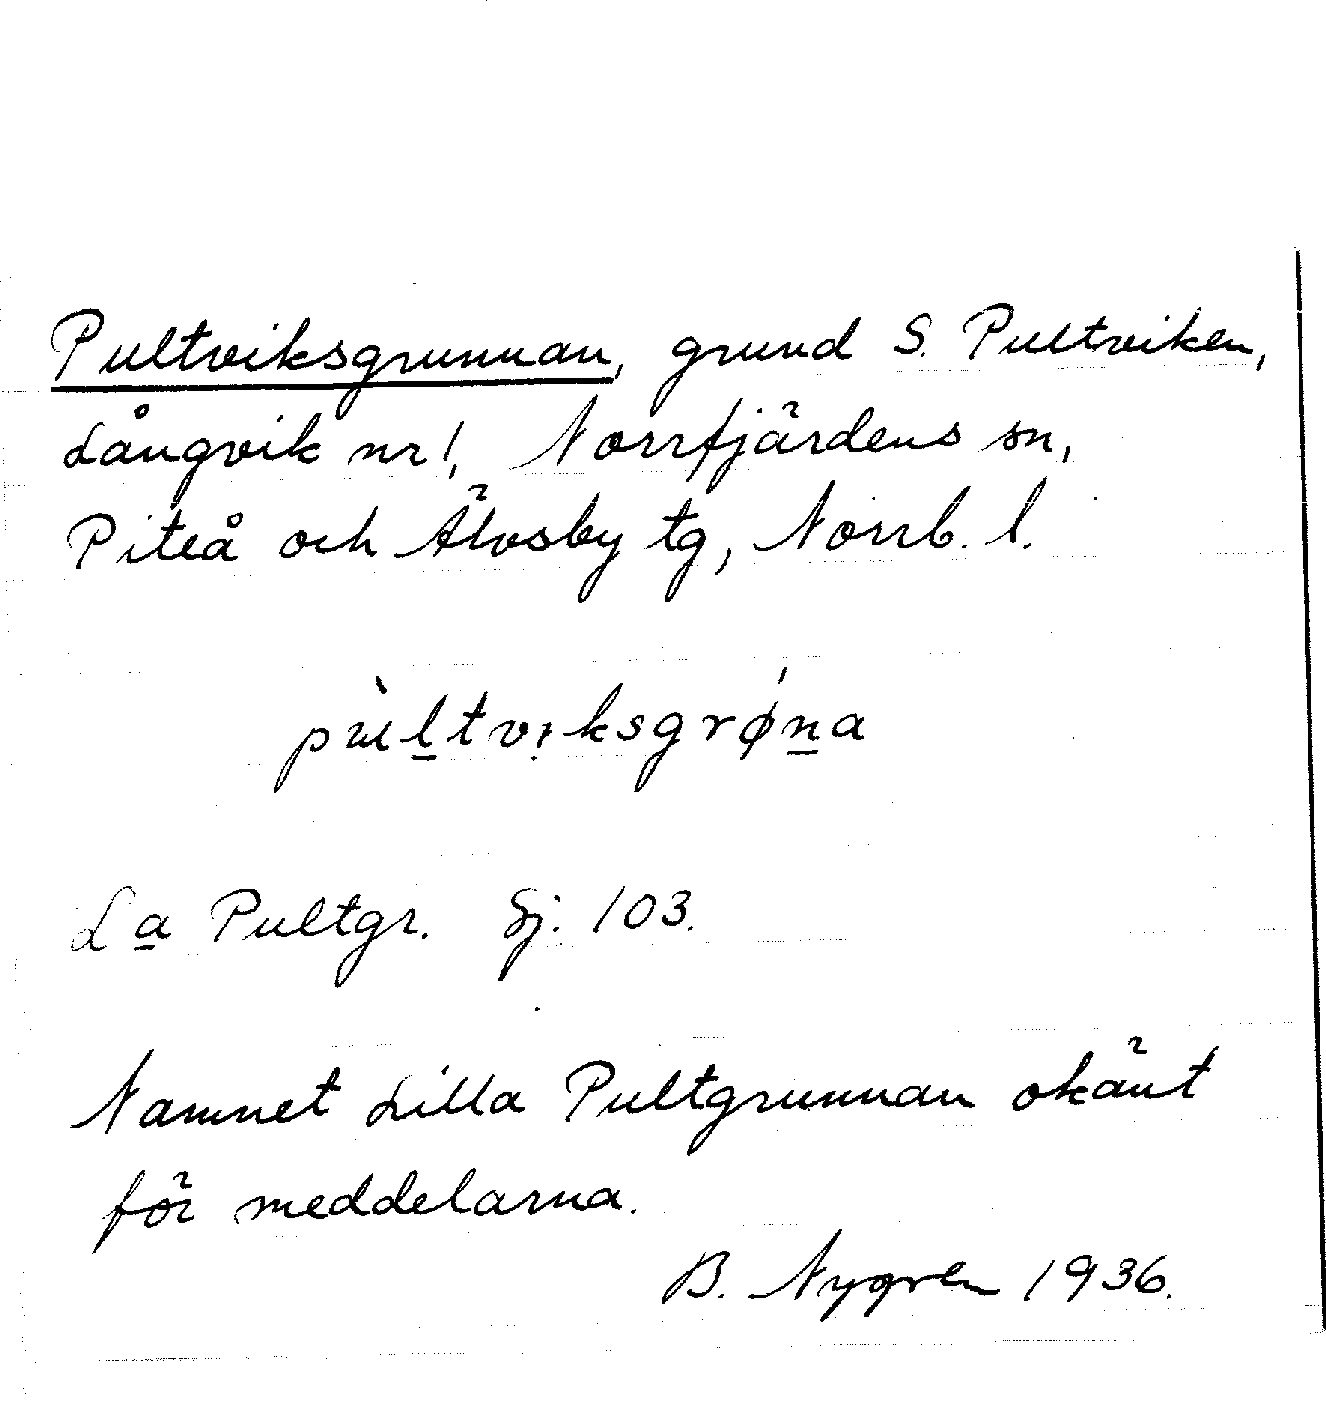 Pultviksgrunnan, grund S. Pultviken,
Långvik nr 1, Norrfjärdens sn,
Piteå och Älvsby tg, Norrb. l.
pùl̲tvıksgrǿn̲a
La̲ Pultgr. Sj. 103.
Namnet Lilla Pultgrunnan okänt
för meddelarna.
B. Nygren 1936.